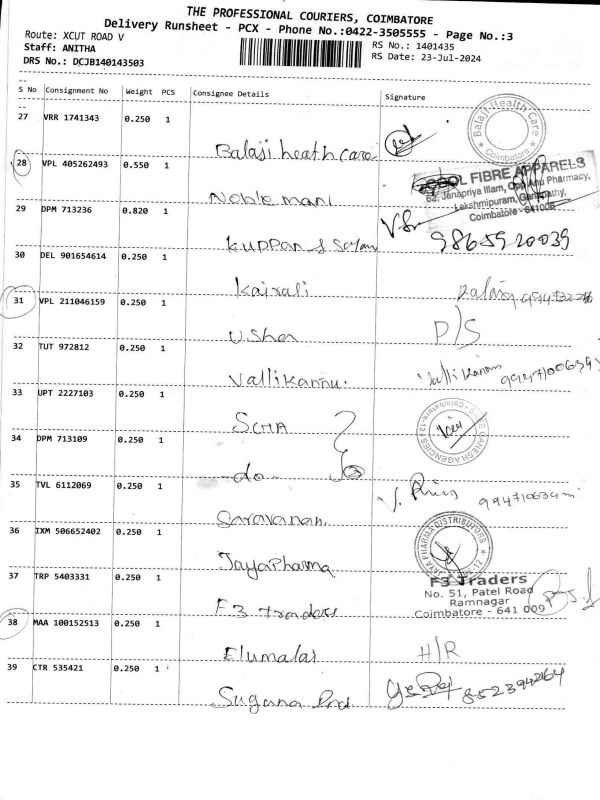 THE PROFESSIONAL COURIERS, COIMBATORE
Delivery Runsheet - PCX - Phone No.:0422-3505555 - Page No.:3
Route: XCUT ROAD V
RS No.: 1401435
Staff: ANITHA
RS Date: 23-Jul-2024
DRS No.: DCJB140143503
S No Consignment No Weight PCS Consignee Details Signature
27 VRR 1741343 0.250 1
Balaji heath care
Balaji Health Care
Coimbatore
28 VPL 405262493 0.550 1
Noble mani
FIBRE APPARELS
62, Janapriya Illam, Opp Anu Pharmacy,
Lakshmipuram, Ganapathy,
Coimbatore - 641006
29 DPM 713236 0.820 1
Kuppan &
9865920039
30 DEL 901654614 0.250 1
Kairali
31 VPL 211046159 0.250 1
Usha
P/S
32 TUT 972812 0.250 1
Vallikannu.
Vallikannu
33 UPT 2227103 0.250 1
SCMA
GANESH AGENCIES
Coimbatore-12
34 DPM 713109 0.250 1
-do-
35 TVL 6112069 0.250 1
Saravanan.
36 IXM 506652402 0.250 1
Jaya Pharma
PHARMA DISTRIBUTORS
37 TRP 5403331 0.250 1
F3 traders
F3 Traders
No. 51, Patel Road
Ramnagar
Coimbatore - 641 009
38 MAA 100152513 0.250 1
Elumalai
H/R
39 CTR 535421 0.250 1
Suguna